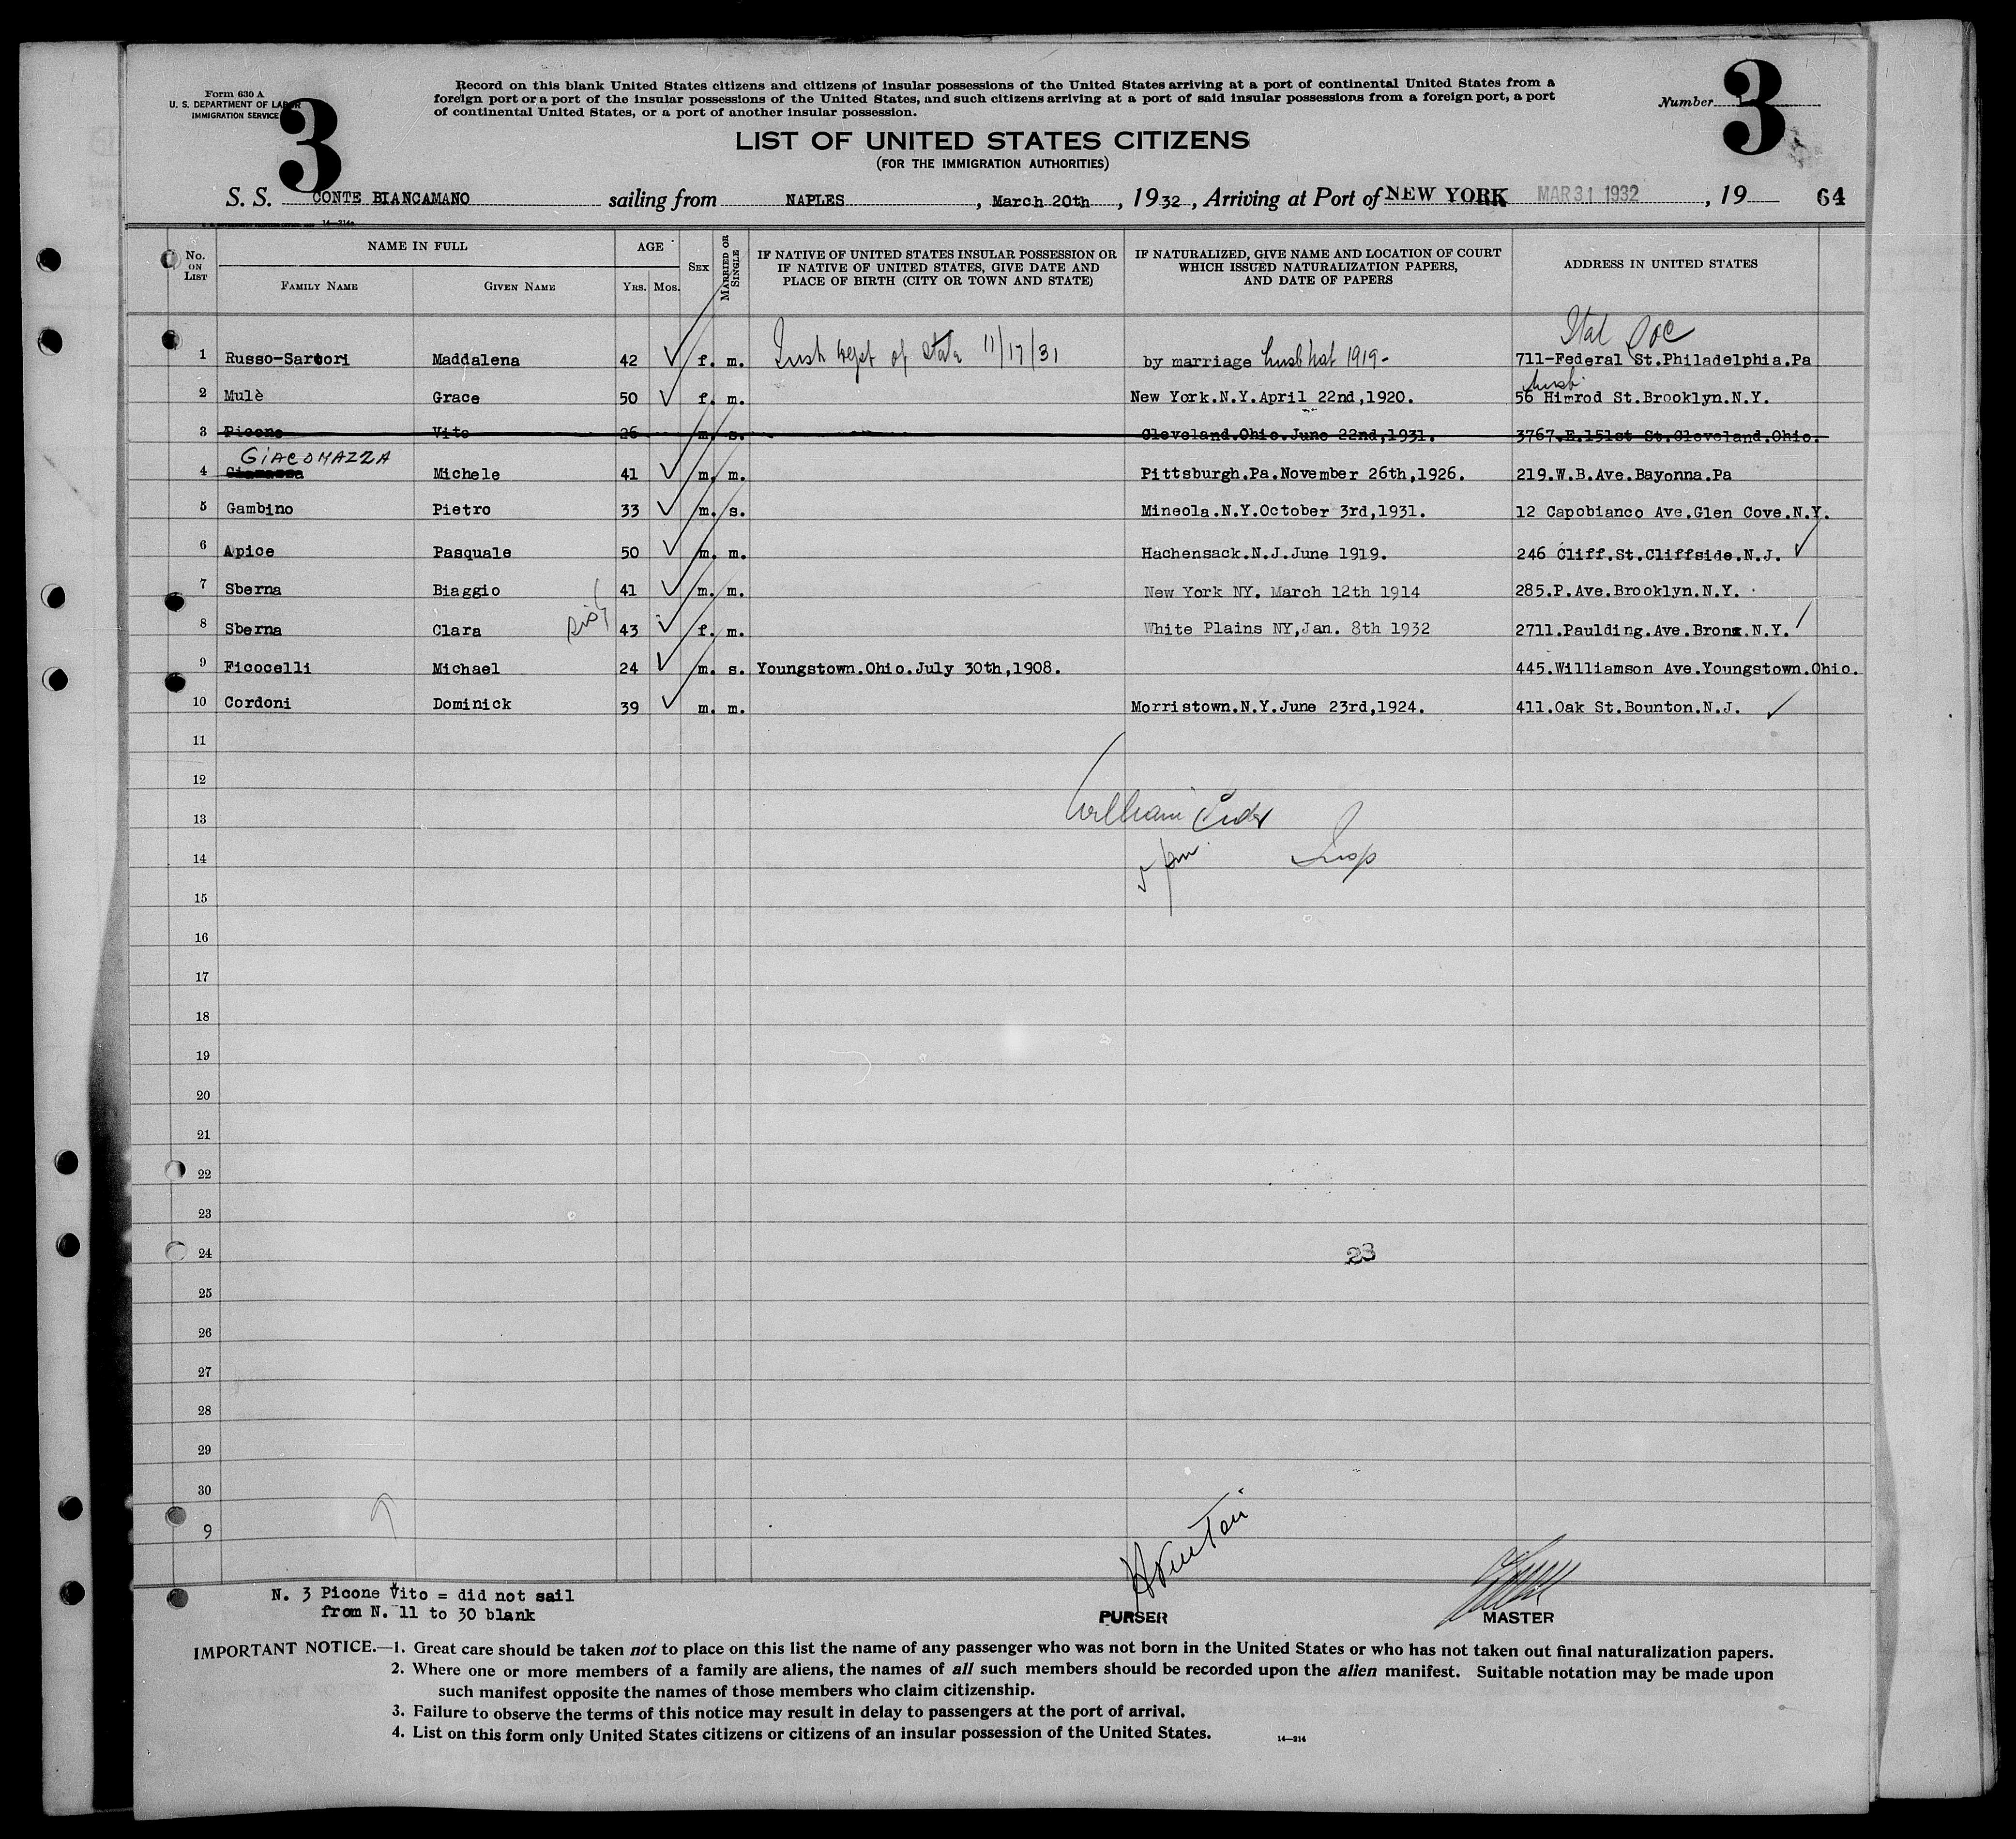 Form 630 A
U. S. DEPARTMENT OF LABOR
IMMIGRATION SERVICE
3
Record on this blank United States citizens and citizens of insular possessions of the United States arriving at a port of continental United States from a
foreign port or a port of the insular possessions of the United States, and such citizens arriving at a port of said insular possessions from a foreign port, a port
of continental United States, or a port of another insular possession.
Number 3
LIST OF UNITED STATES CITIZENS
(FOR THE IMMIGRATION AUTHORITIES)
S. S. CONTE BIANCAMANO sailing from NAPLES, March 20th, 1932, Arriving at Port of NEW YORK MAR 31 1932, 19 64
No. ON LIST
NAME IN FULL
FAMILY NAME
GIVEN NAME
AGE
YRS. MOS.
SEX
MARRIED OR SINGLE
IF NATIVE OF UNITED STATES INSULAR POSSESSION OR
IF NATIVE OF UNITED STATES, GIVE DATE AND
PLACE OF BIRTH (CITY OR TOWN AND STATE)
IF NATURALIZED, GIVE NAME AND LOCATION OF COURT
WHICH ISSUED NATURALIZATION PAPERS,
AND DATE OF PAPERS
ADDRESS IN UNITED STATES
1 Russo-Sartori Maddalena 42 f. m. Dept of State 11/17/31 by marriage husb nat 1919- 711-Federal St.Philadelphia.Pa
husb
2 Mulè Grace 50 f. m. New York.N.Y.April 22nd,1920. 56 Himrod St.Brooklyn.N.Y.
3 Picone Vito 26 m. s. Cleveland.Ohio.June 22nd,1931. 3767.E.151st St.Cleveland.Ohio.
GIACOMAZZA
4 Michele 41 m. m. Pittsburgh.Pa.November 26th,1926. 219.W.B.Ave.Bayonna.Pa
5 Gambino Pietro 33 m. s. Mineola.N.Y.October 3rd,1931. 12 Capobianco Ave.Glen Cove.N.Y.
6 Apice Pasquale 50 m. m. Hachensack.N.J.June 1919. 246 Cliff.St.Cliffside.N.J.
7 Sberna Biaggio 41 m. m. New York NY. March 12th 1914 285.P.Ave.Brooklyn.N.Y.
8 Sberna Clara sis 43 f. m. White Plains NY,Jan. 8th 1932 2711.Paulding.Ave.Bronx.N.Y.
9 Ficocelli Michael 24 m. s. Youngstown.Ohio.July 30th,1908. 445.Williamson Ave.Youngstown.Ohio.
10 Cordoni Dominick 39 m. m. Morristown.N.Y.June 23rd,1924. 411.Oak St.Bounton.N.J.
11
12
13 William
14 Insp
15
16
17
18
19
20
21
22
23
24 23
25
26
27
28
29
30
9
N. 3 Picone Vito = did not sail
from N. 11 to 30 blank
PURSER
MASTER
IMPORTANT NOTICE.—1. Great care should be taken not to place on this list the name of any passenger who was not born in the United States or who has not taken out final naturalization papers.
2. Where one or more members of a family are aliens, the names of all such members should be recorded upon the alien manifest. Suitable notation may be made upon
such manifest opposite the names of those members who claim citizenship.
3. Failure to observe the terms of this notice may result in delay to passengers at the port of arrival.
4. List on this form only United States citizens or citizens of an insular possession of the United States.
14—214